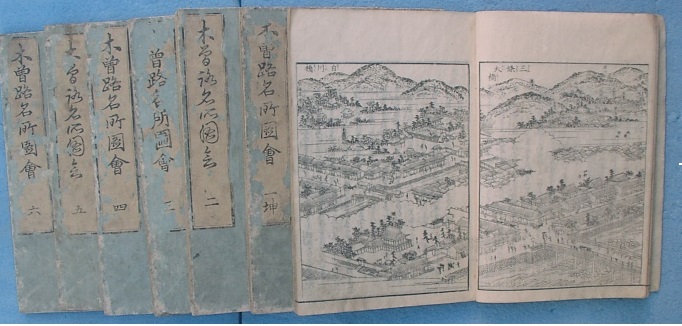 三條大橋
白川橋
木曽路名所圖會 一坤
木曽路名所圖会 二
曽路名所圖會 三
木曽路名所圖會 四
木曽路名所圖会 五
木曽路名所圖會 六